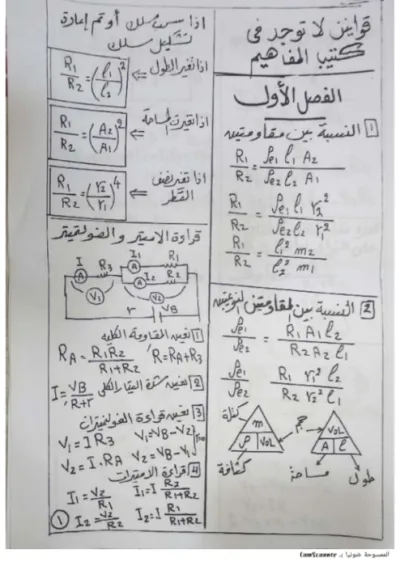 قوانين لا توجد فى
كتيب المفاهيم
الفصل الأول
1 النسبة بين مقاومتين
R1/R2 = ρe1 l1 A2 / ρe2 l2 A1
R1/R2 = ρe1 l1 r2² / ρe2 l2 r1²
R1/R2 = l1² m2 / l2² m1
2 النسبة بين المقاومتين النوعيتين
ρe1/ρe2 = R1 A1 l2 / R2 A2 l1
ρe1/ρe2 = R1 r1² l2 / R2 r2² l1
كتلة
m
ρ VOL
حجم
VOL
A l
كثافة
مساحة
طول
اذا سحب سلك أو تم إعادة
تشكيل سلك
اذا تغير الطول
R1/R2 = (l1/l2)²
اذا تغيرت المساحة
R1/R2 = (A2/A1)²
اذا تغير نصف
القطر
R1/R2 = (r2/r1)⁴
قراءة الاميتر والفولتميتر
I A R3 I1 A R1
A I2 R2
V1 V2
r VB
1 نعين المقاومة الكلية
RA = R1R2 / R1+R2 R = RA+R3
2 نعين شدة التيار الكلى
I = VB / R+r
3 نعين قراءة الفولتميترات
V1 = I R3 V1 = VB-V2
V2 = I . RA V2 = VB-V1
4 قراءة الاميترات
I1 = V2/R1 I1 = I R2/R1+R2
I2 = V2/R2 I2 = I R1/R1+R2
1
الممسوحة ضوئيا بـ CamScanner